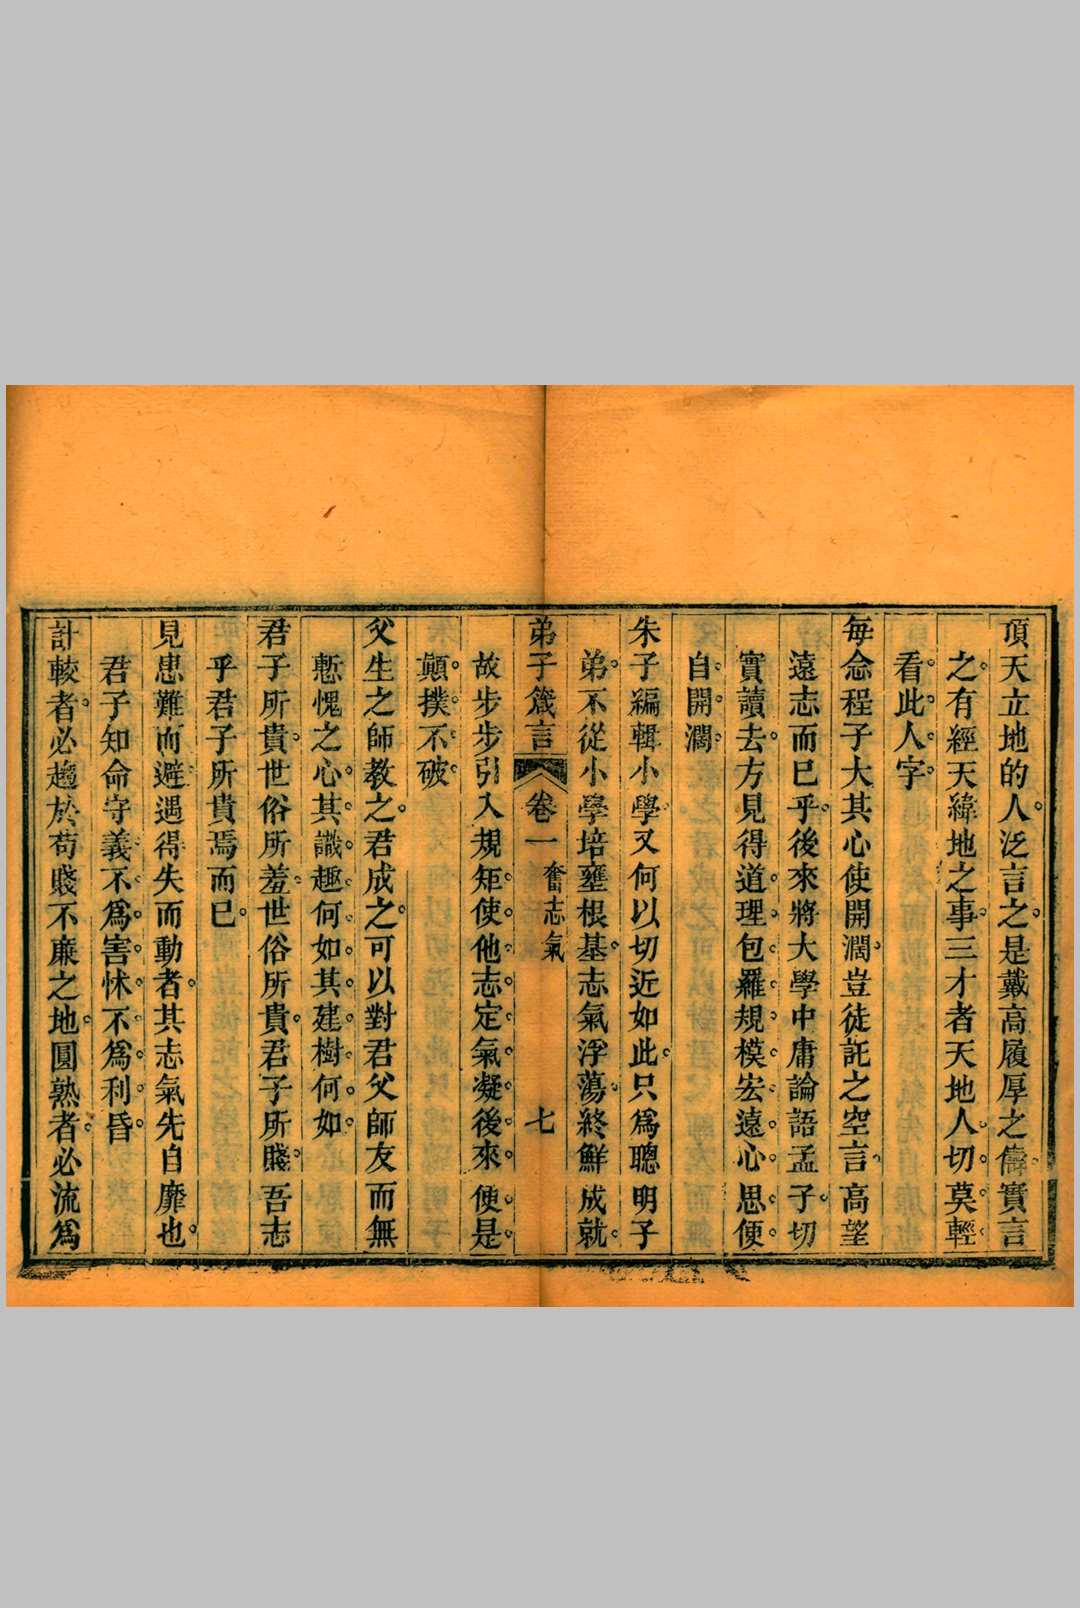 頂天立地的人泛言之是戴高履厚之儔實言
之有經天緯地之事三才者天地人切莫輕
看此人字
每念程子大其心使開濶豈徒託之空言高望
遠志而已乎後來將大學中庸論語孟子切
實讀去方見得道理包羅規模宏遠心思便
自開濶
朱子編輯小學又何以切近如此只爲聰明子
弟不從小學培壅根基志氣浮蕩終鮮成就
弟子箴言 卷一 奮志氣 七
故步步引入規矩使他志定氣凝後來便是
顚撲不破
父生之師教之君成之可以對君父師友而無
慙愧之心其識趣何如其建樹何如
君子所貴世俗所羞世俗所貴君子所賤吾志
乎君子所貴焉而已
見患難而避遇得失而動者其志氣先自靡也
君子知命守義不爲害怵不爲利昏
計較者必趨於苟賤不廉之地圓熟者必流爲